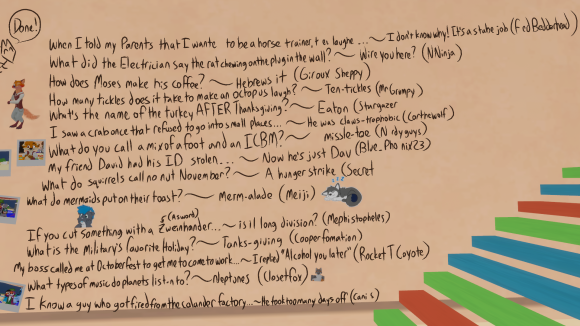 Done!
When I told my Parents that I wante to be a horse trainer, t ey laughe ... ~ I don't know why! It's a stable job (F ed Badderhead)
What did the Electrician say the rat chewing on the plug in the wall? ~ Wire you here? (NNinja)
How does Moses make his coffee? ~ Hebrews it (Giroux Sheppy)
How many tickles does it take to make an octopus laugh? ~ Ten-tickles (Mr Grumpy)
What's the name of the turkey AFTER Thanksgiving? ~ Eaton (Stargazer
I saw a crab once that refused to go into small places... ~ He was claws-trophobic (Corthewolf)
What do you call a mix of a foot and an ICBM? ~ missle-toe (N rdy guys)
My friend David had his ID stolen... ~ Now he's just Dav (Blue_Pho nix23)
What do squirrels call no nut November? ~ A hunger strike (Secret
What do mermaids put on their toast? ~ Merm-alade (Meiji)
(A sword)
If you cut something with a Zweinhander... ~ is it long division? (Mephistopheles)
What is the Military's favorite Holiday? ~ Tanks-giving (Cooperfomation)
My boss called me at Octoberfest to get me to come to work... ~ I replied "Alcohol you later" (Rocket T Coyote)
What types of music do planets list-n to? ~ Neptunes (Closetfox)
I know a guy who got fired from the calander factory... ~ He took too many days off (Cani s)